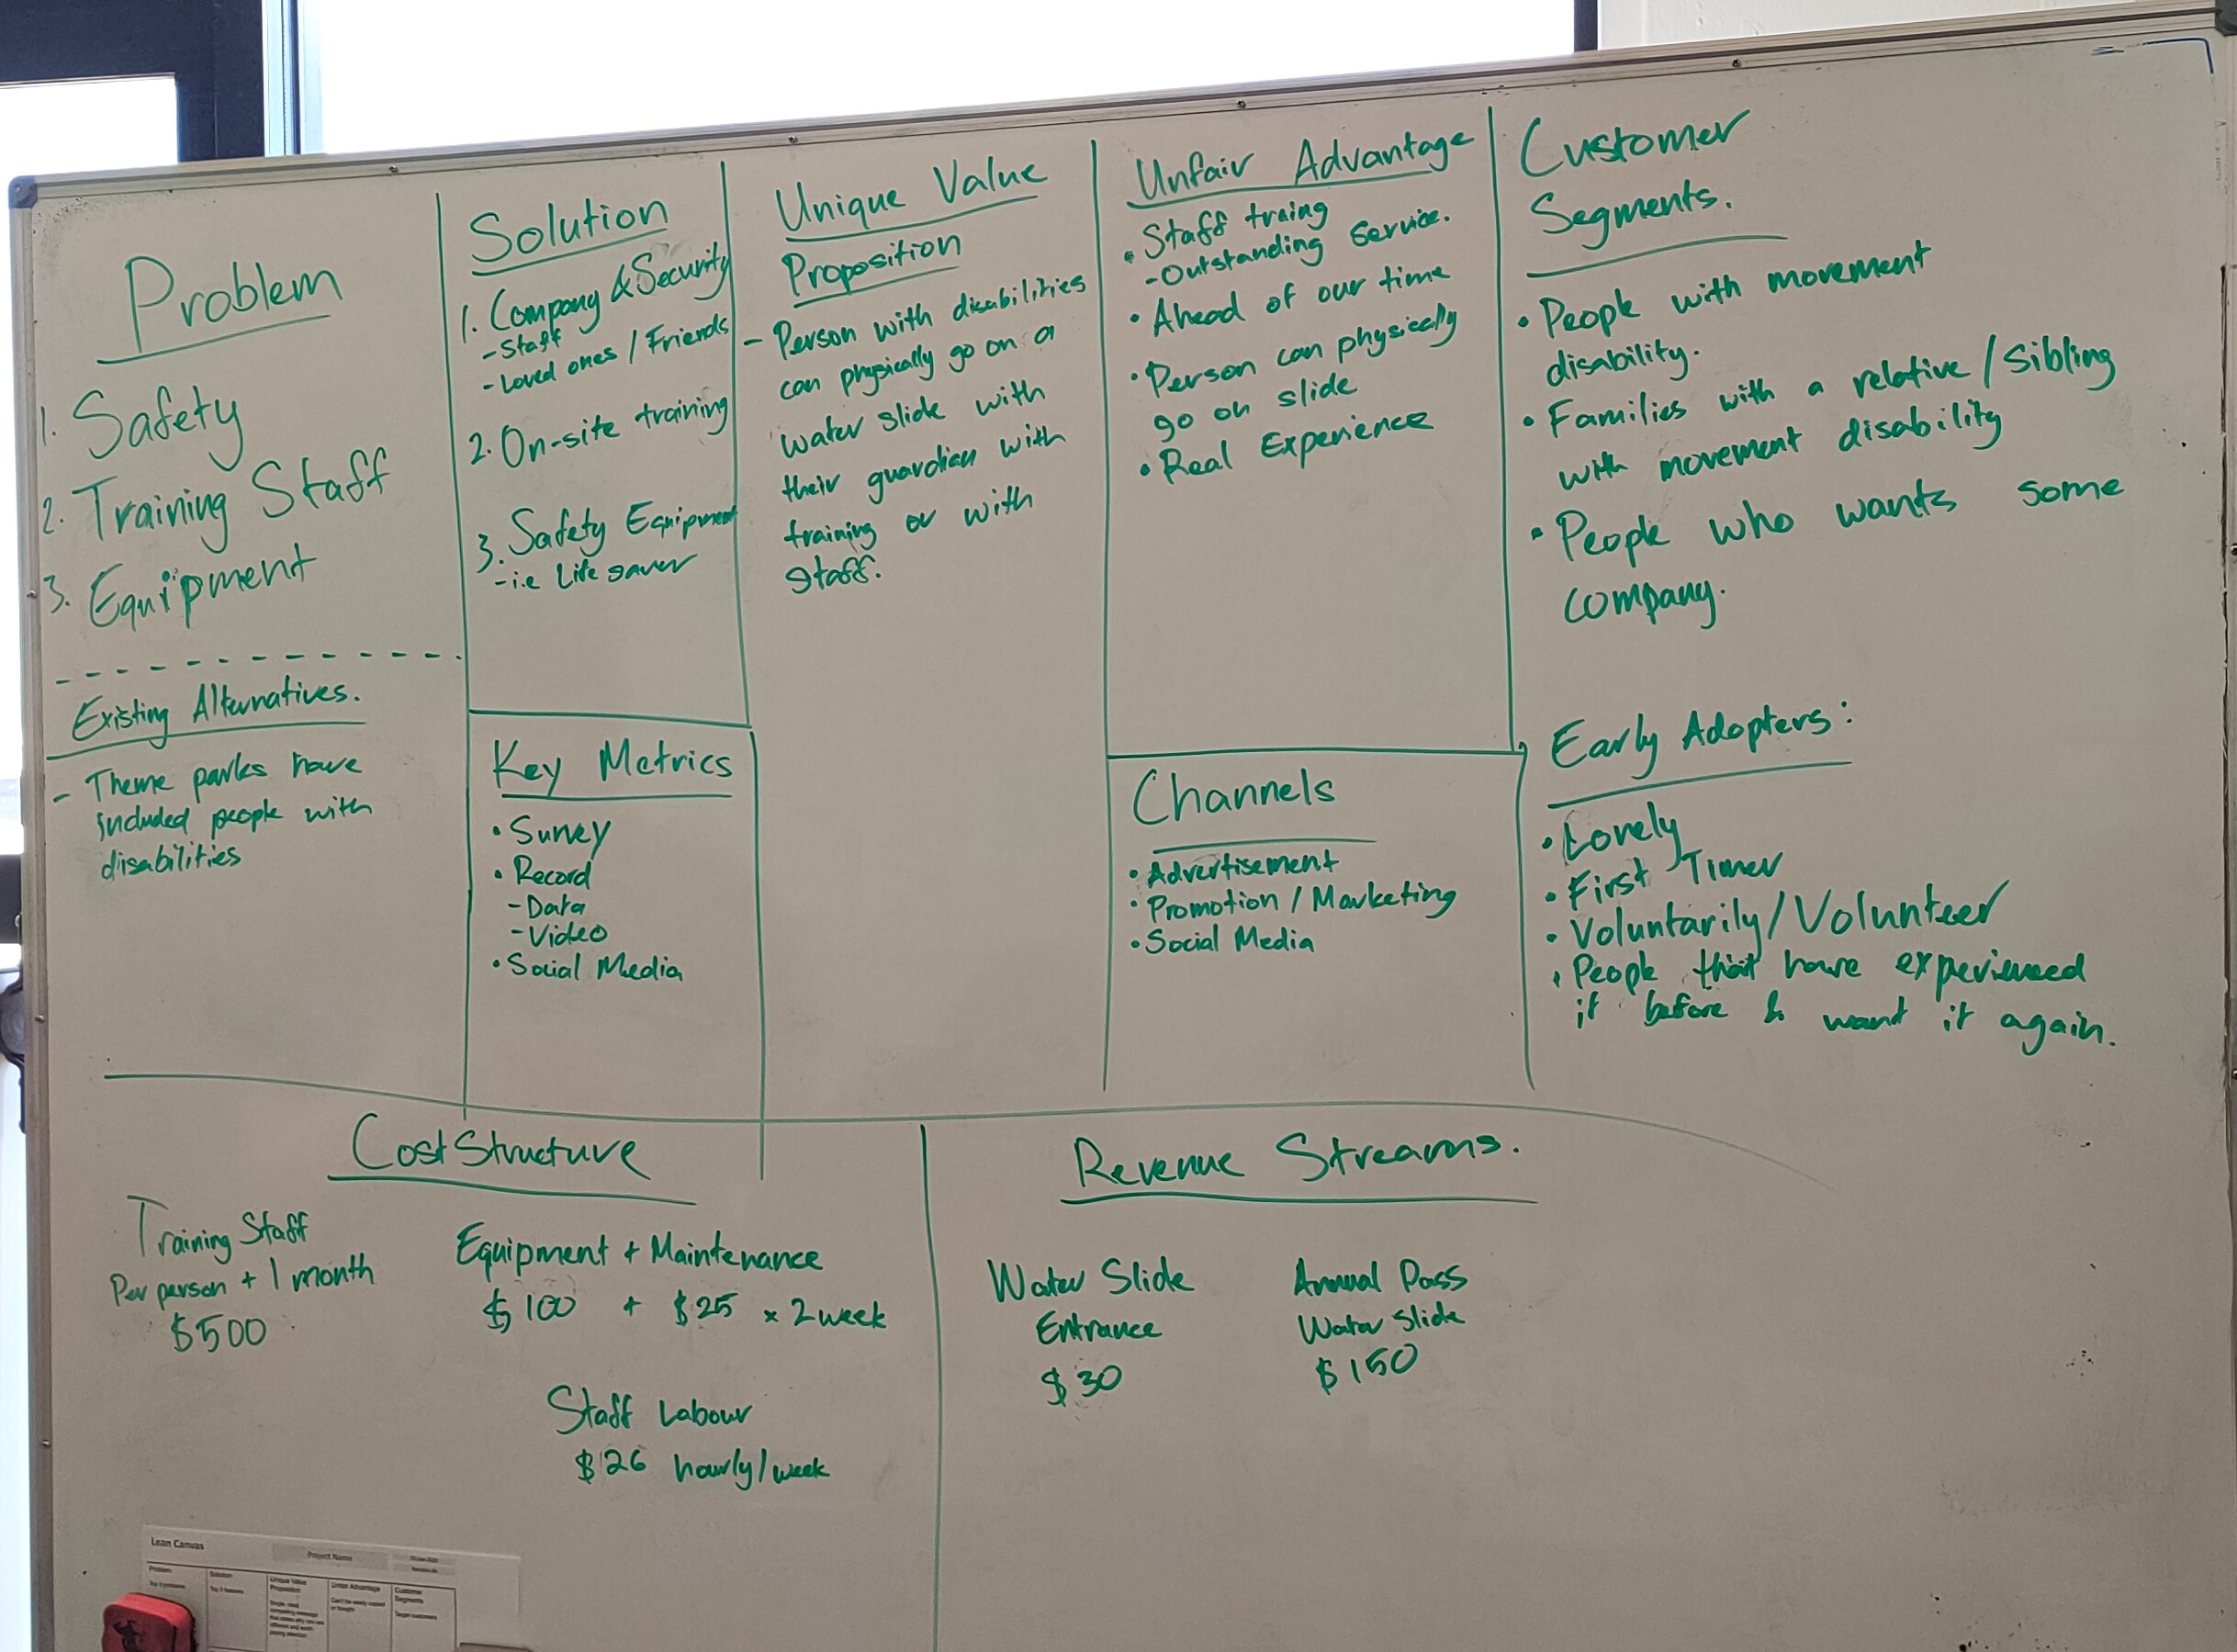 Problem
1. Safety
2. Training Staff
3. Equipment
Existing Alternatives.
- Theme parks have
included people with
disabilities
Solution
1. Company & Security
- Staff
- Loved ones / Friends
2. On-site training
3. Safety Equipment
- i.e Life saver
Key Metrics
• Survey
• Record
- Data
- Video
• Social Media
Unique Value
Proposition
- Person with disabilities
can physically go on a
water slide with
their guardian with
training or with
staff.
Unfair Advantage
• Staff traing
- Outstanding service.
• Ahead of our time
• Person can physically
go on slide
• Real Experience
Channels
• Advertisement
• Promotion / Marketing
• Social Media
Customer
Segments.
• People with movement
disability.
• Families with a relative / sibling
with movement disability
• People who wants some
company.
Early Adopters:
• Lonely
• First Timer
• Voluntarily/Volunteer
• People that have experienced
it before & want it again.
Cost Structure
Training Staff
Per person + 1 month
$500
Equipment + Maintenance
$100 + $25 x 2 week
Staff Labour
$26 hourly/week
Revenue Streams.
Water Slide
Entrance
$30
Annual Pass
Water Slide
$150
Lean Canvas
Project Name
Problem
Top 3 problems
Solution
Top 3 features
Unique Value
Proposition
Unfair Advantage
Customer
Segments
Target customers